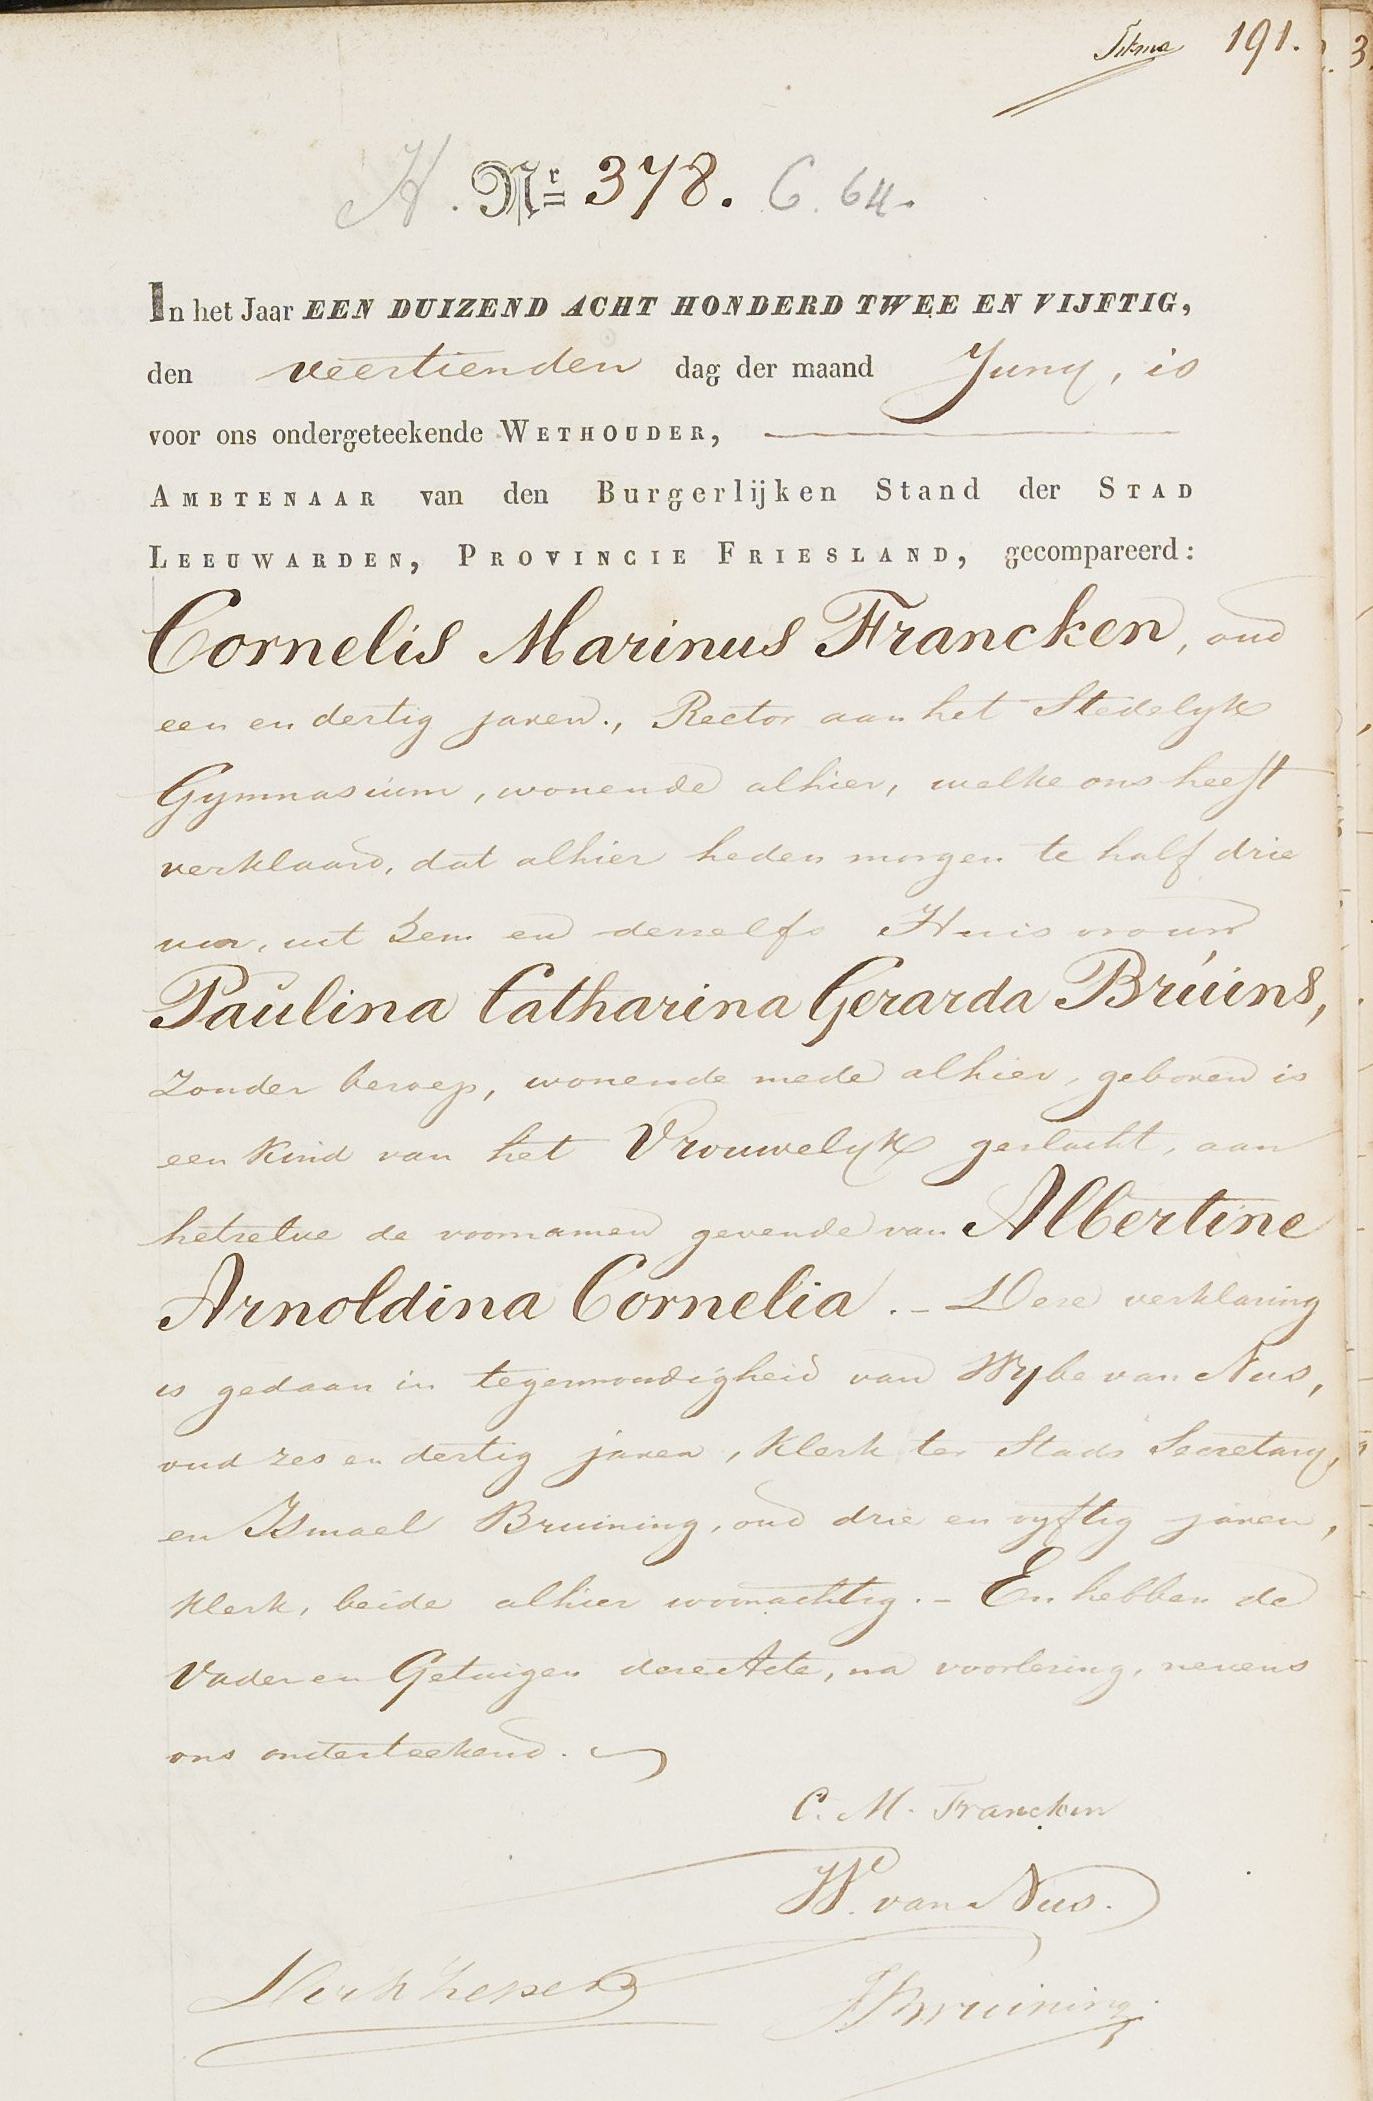 191.
H. Nr 378. C. 64.
In het Jaar EEN DUIZEND ACHT HONDERD TWEE EN VIJFTIG,
den veertienden dag der maand Juny, is
voor ons ondergeteekende WETHOUDER,
AMBTENAAR van den Burgerlijken Stand der STAD
LEEUWARDEN, PROVINCIE FRIESLAND, gecompareerd:
Cornelis Marinus Francken, oud
een en dertig jaren., Rector aan het Stedelyk
Gymnasium, wonende alhier, welke ons heeft
verklaard, dat alhier heden morgen te half drie
uur, uit hem en deszelfs Huisvrouw
Paulina Catharina Gerarda Bruins,
zonder beroep, wonende mede alhier, geboren is
een kind van het Vrouwelyk geslacht, aan
hetzelve de voornamen gevende van Albertine
Arnoldina Cornelia. - Deze verklaring
is gedaan in tegenwoordigheid van Wybe van Nus,
oud zes en dertig jaren, Klerk ter Stads Secretary,
en Ismael Bruining, oud drie en vyftig jaren,
Klerk, beide alhier woonachtig. - En hebben de
Vader en Getuigen deze Acte, na voorlezing, nevens
ons onderteekend.
C. M. Francken
W. van Nus.
Bruining.